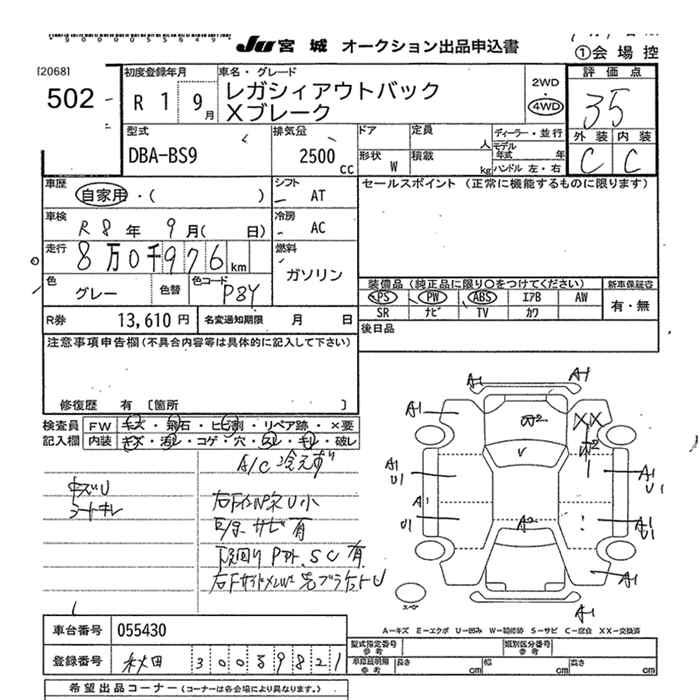 JU 宮城 オークション出品申込書
①会場控
[2068]
502
初度登録年月
R 1 9月
車名・グレード
レガシィアウトバック
Xブレーク
2WD
4WD
評価点
35
外装 内装
C C
型式
DBA-BS9
排気分
2500 cc
ドア
定員
人
形状
W
積載
kg
ディーラー・並行
モデル年式
年
ハンドル 左・右
車歴
自家用・( )
シフト
AT
セールスポイント (正常に機能するものに限ります)
車検
R 8年 9月( 日)
冷房
AC
走行
8万0千976km
燃料
ガソリン
色
グレー
色替
色コード
P8Y
装備品 (純正品に限り○をつけてください)
新車保証書
PS PW ABS エアB AW
SR ナビ TV カワ
有・無
R券
13,610円
名変通知期限
月 日
後日品
注意事項申告欄 (不具合内容等は具体的に記入して下さい)
修復歴 有 [箇所 ]
検査員
記入欄
FW キズ・飛石・ヒビ割・リペア跡・×要
内装 キズ・汚レ・コゲ・穴・スレ・キレ・破レ
A/C 冷えず
キズU
シートキレ
サビ有
下回り
SC有
A1
A1
A1
A1
W2
XX
W2
A1
U1
A1
U1
A1
U1
A2
A1
U1
A1
A1
A―キズ E―エクボ U―凹み W―補修跡 S―サビ C―腐食 XX―交換済
車台番号
055430
登録番号
秋田 300 す 9821
型式指定番号
参考
類別区分番号
参考
車検証明細
参考
長さ cm
幅 cm
高さ cm
希望出品コーナー (コーナーは各会場により異なります。)